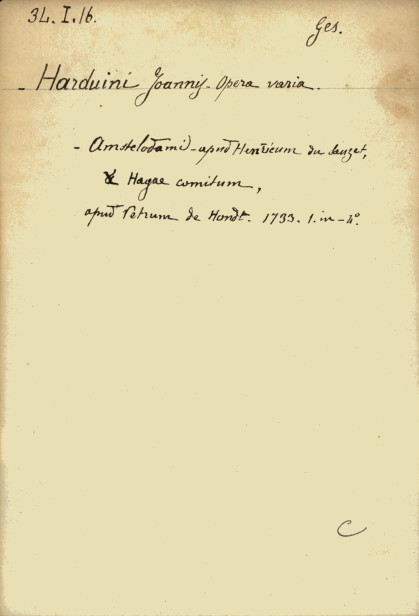 34. I. 16.
Ges.
- Harduini Joannis - Opera varia.
- Amstelodami - apud Henricum du Sauzet,
& Hagae comitum,
apud Petrum de Hondt. 1733. 1. in - 4°.
C